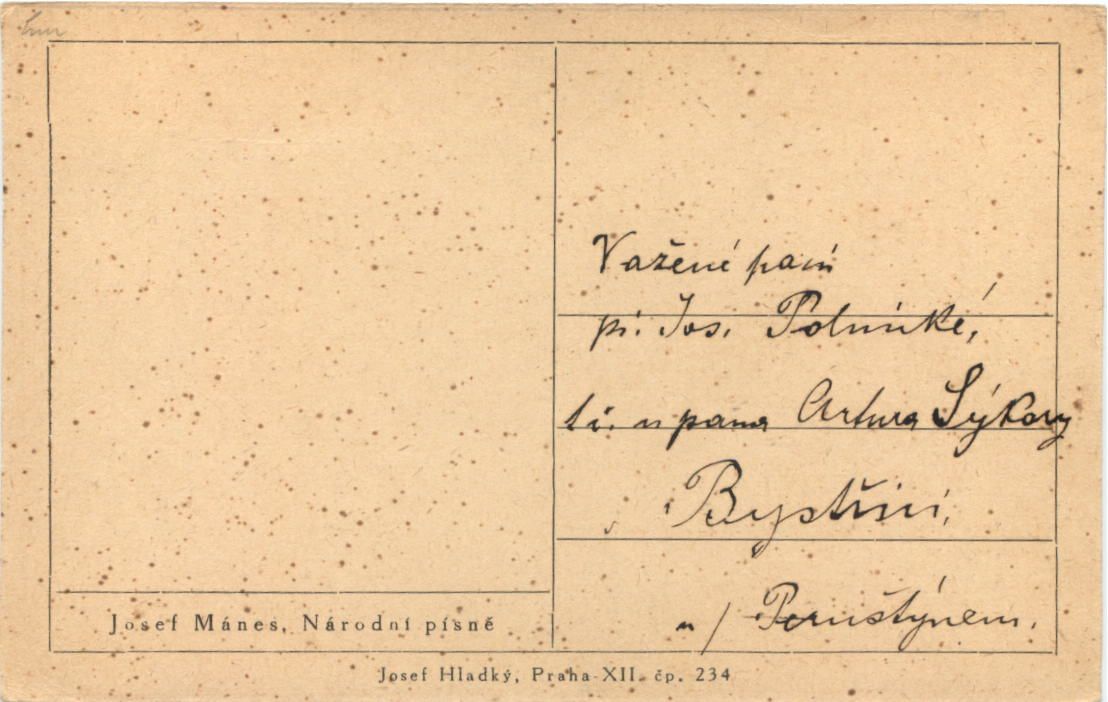 Vážené paní
pí. Jos. Polnické,
t.č. u pana Artura Sýkory
v Bystřici,
n/ Pernštýnem.
Josef Mánes, Národní písně
Josef Hladký, Praha-XII. čp. 234